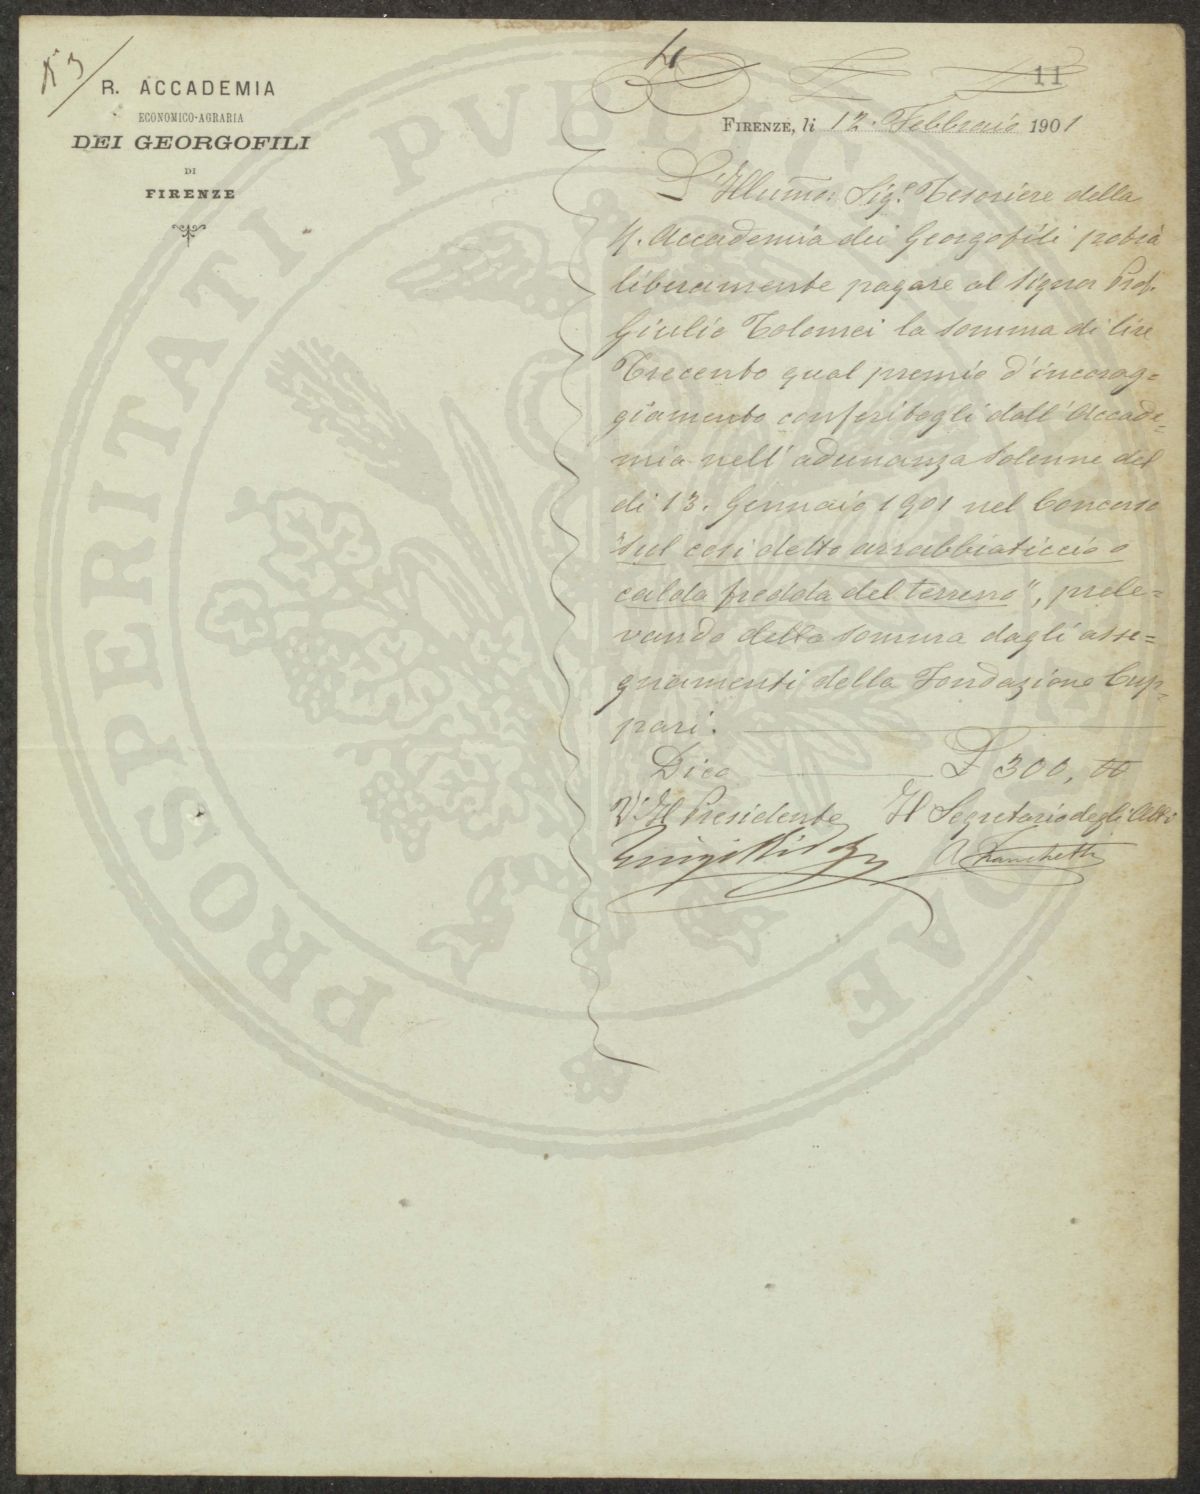 N 3
R. ACCADEMIA
ECONOMICO-AGRARIA
DEI GEORGOFILI
DI
FIRENZE
11
FIRENZE, li 12. Febbraio 1901
L'Illumo: Sigr. Tesoriere della
R. Accademia dei Georgofili potrà
liberamente pagare al Signor Prof.
Giulio Tolomei la somma di lire
Trecento qual premio d'incorag=
giamento conferitogli dall'Accade=
mia nell'adunanza Solenne del
di 13. Gennaio 1901 nel Concorso
"sul cosi detto arrabbiaticcio o
calda fredda del terreno", prele=
vando detta somma dagli asse=
gnamenti della Fondazione Cup=
pari.
Dico £ 300, 00
V° Il Presidente Il Segretario degli Atti
Luigi Ridolfi A Franchetti
PROSPERITATI PVBLICAE AVGENDAE